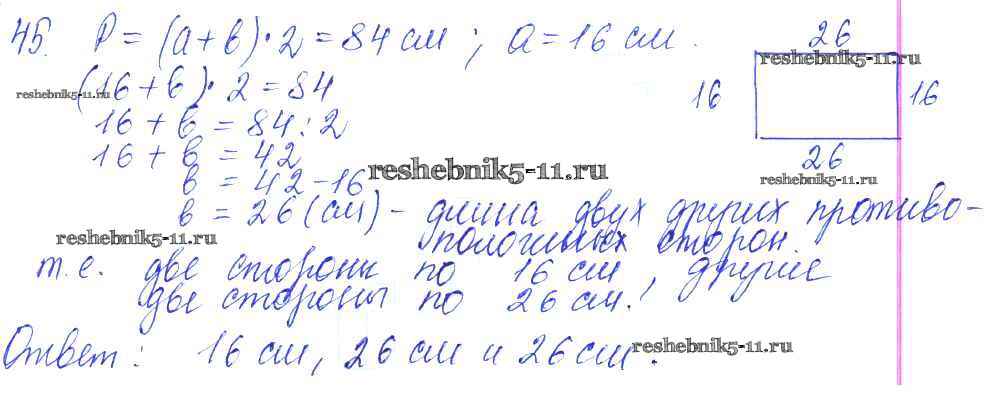 45. P = (a + в) · 2 = 84 см ; a = 16 см.
26
reshebnik5-11.ru
(16 + в) · 2 = 84
reshebnik5-11.ru
16
16
16 + в = 84 : 2
16 + в = 42
26
reshebnik5-11.ru
в = 42 - 16
reshebnik5-11.ru
в = 26 (см) - длина двух других противо-
положных сторон.
reshebnik5-11.ru
т.е. две стороны по 16 см, другие
две стороны по 26 см.
Ответ: 16 см, 26 см и 26 см.
reshebnik5-11.ru